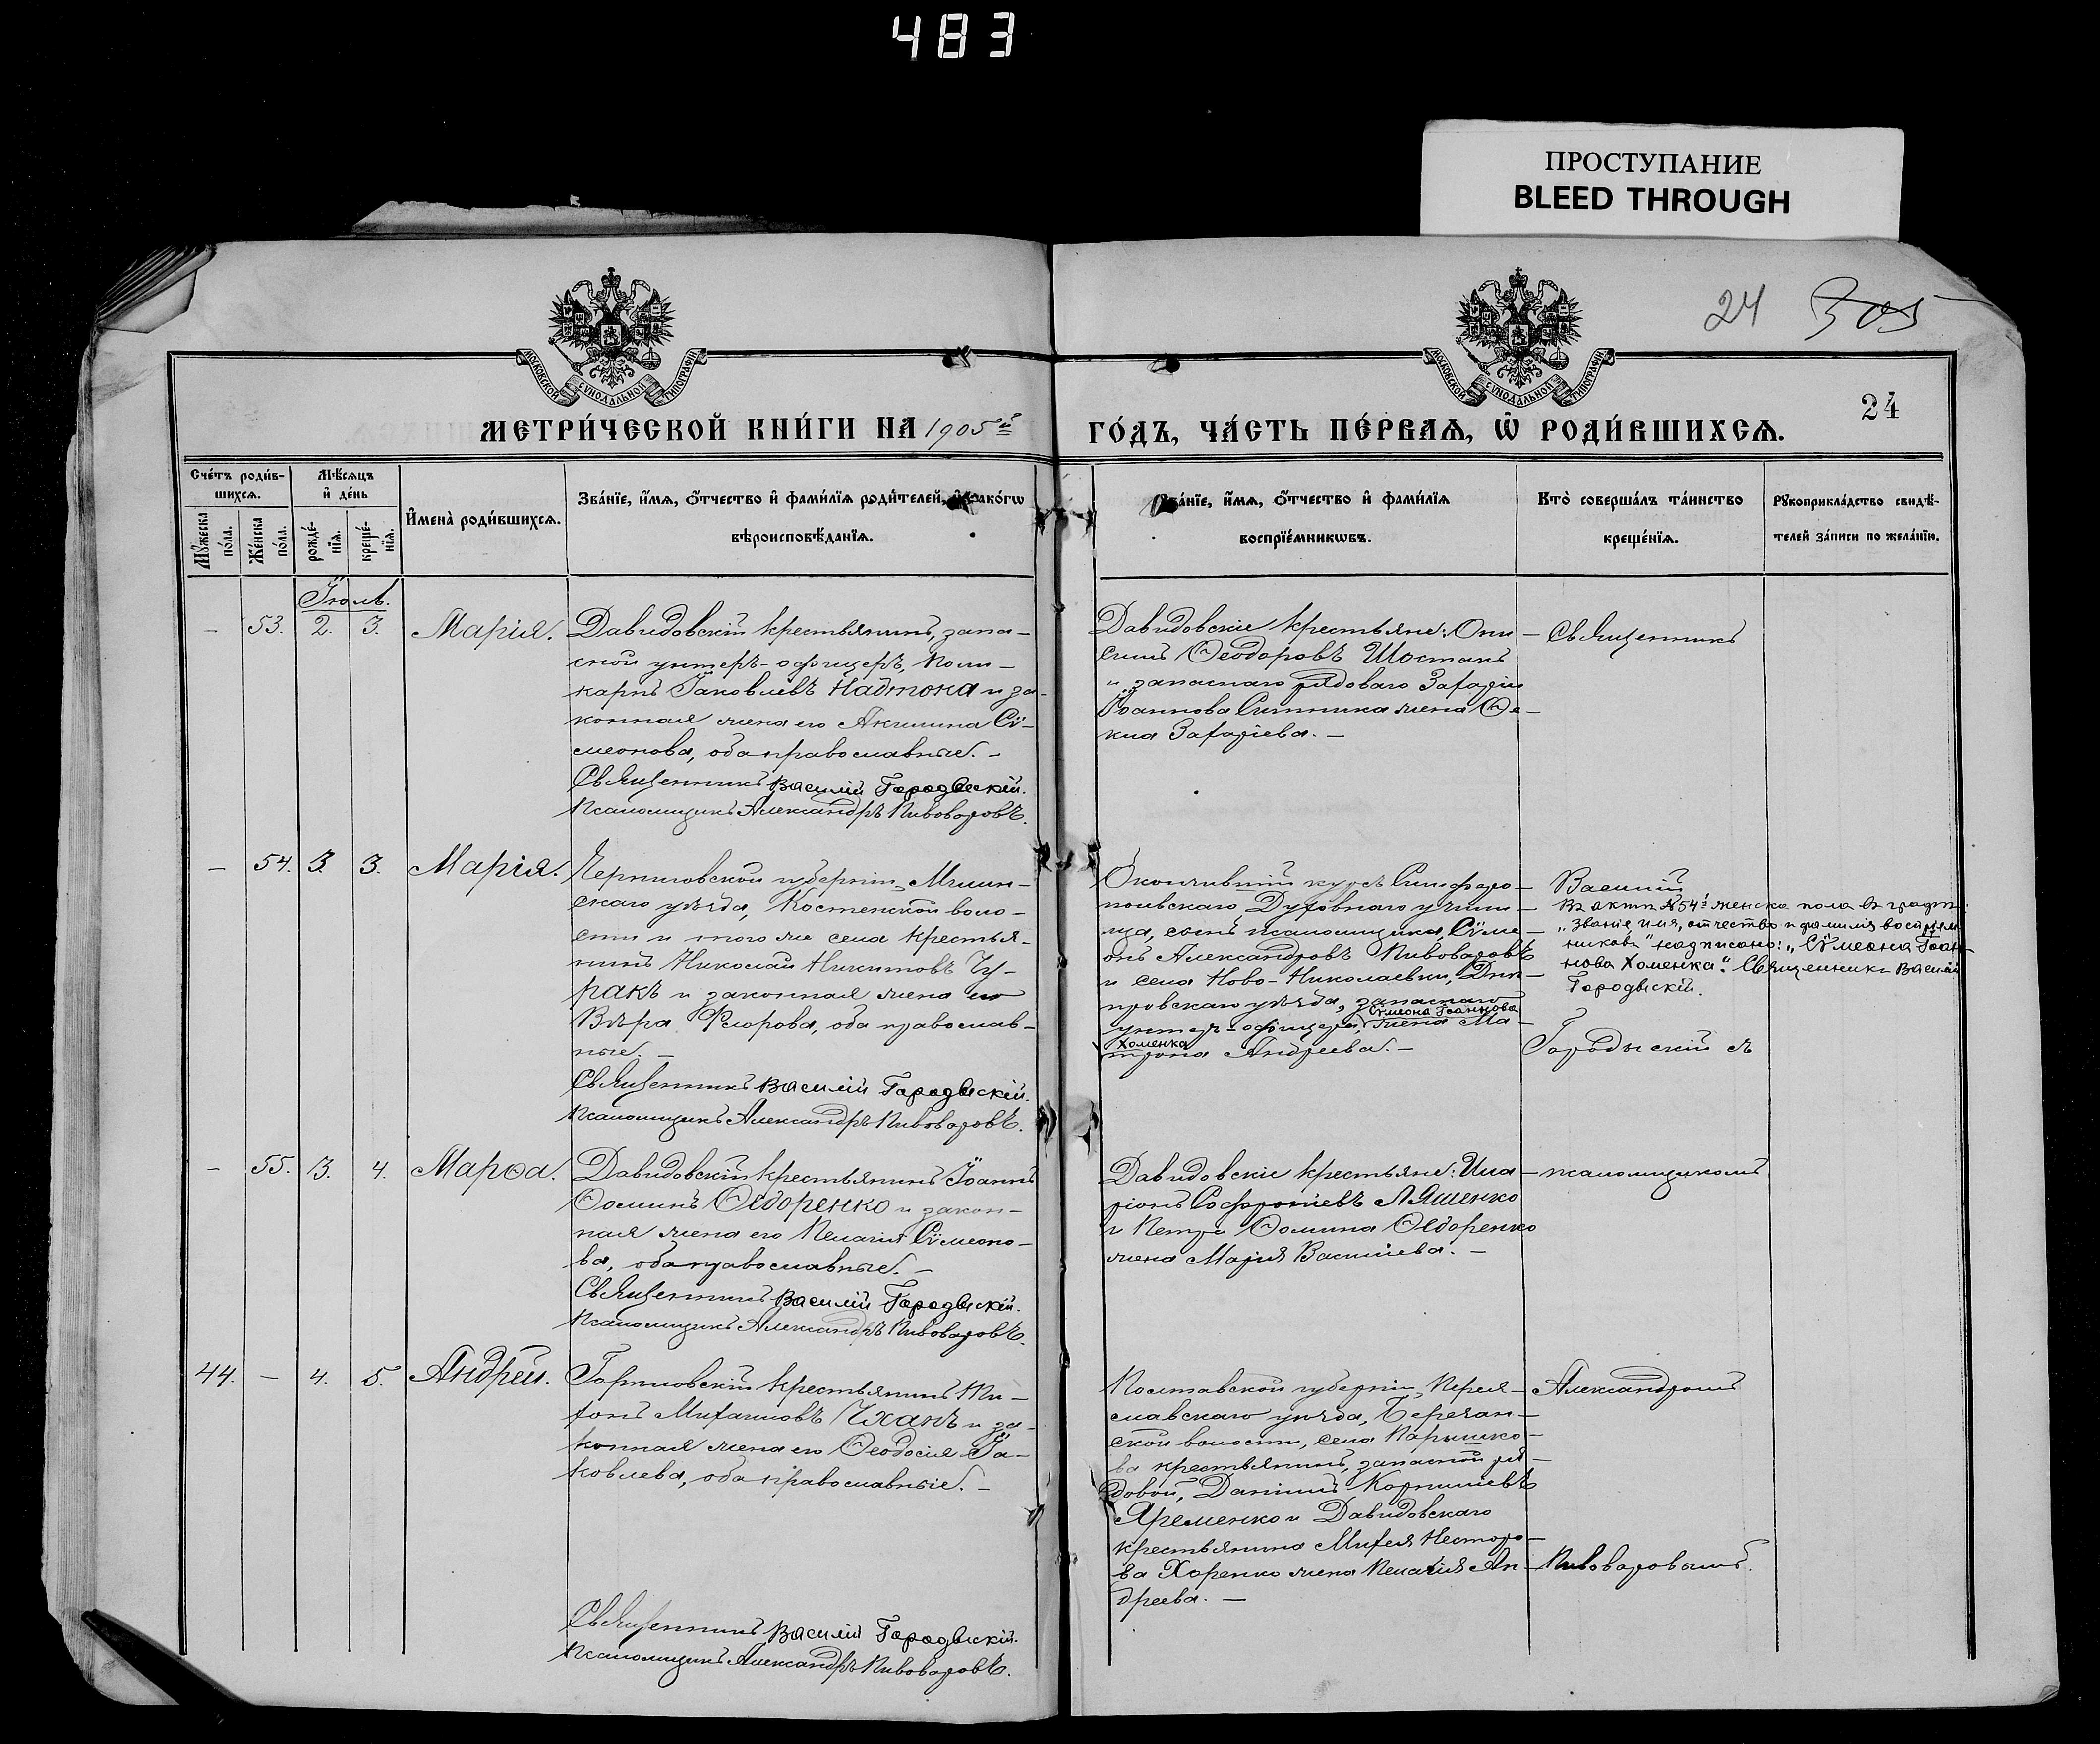 483
ПРОСТУПАНИЕ
BLEED THROUGH
24 305
МОСКОВСКОЙ СУНОДАЛЬНОЙ ТИПОГРАФІИ
МОСКОВСКОЙ СУНОДАЛЬНОЙ ТИПОГРАФІИ
24
МЕТРИ́ЧЕСКОЙ КНИ́ГИ НА 1905й
ГО́ДЪ, ЧА́СТЬ ПЕ́РВАѦ, Ѡ҆ РОДИ́ВШИХСѦ.
Сче́тъ роди́в-
шихсѧ.
Мѣ́сѧцъ
и҆ де́нь
Мꙋ́жеска
по́ла.
Же́нска
по́ла.
рожде́-
нїѧ.
креще́-
нїѧ.
И҆мена̀ роди́вшихсѧ.
Зва́нїе, и҆́мѧ, ѻ҆́тчество и҆ фами́лїѧ роди́телей, и҆ како́гѡ
вѣроисповѣ́данїѧ.
Зва́нїе, и҆́мѧ, ѻ҆́тчество и҆ фами́лїѧ
воспрїе́мникѡвъ.
Кто̀ соверша́лъ та́инство
креще́нїѧ.
Рꙋкоприкла́дство свидѣ́-
телей за́писи по жела́нїю.
Іюль.
— 53. 2. 3. Марія.
Давидовскій крестьянинъ, запа-
сной унтеръ-офицеръ, Поли-
карпъ Іаковлевъ Надтока и за-
конная жена его Акилина Сѵ-
меонова, оба православные. —
Священникъ Василій Городыскій.
Псаломщикъ Александръ Пивоваровъ.
Давидовскіе крестьяне: Они-
симъ Ѳеодоровъ Шостакъ
и запаснаго рядоваго Захаріи
Іоаннова Ситника жена Ѳе-
кла Захаріева. —
Священникъ
— 54. 3. 3. Марія.
Черниговской губерніи, Мглин-
скаго уѣзда, Костенской воло-
сти и того же села крестья-
нинъ Николай Никитовъ Чу-
ракъ и законная жена его
Вѣра Флорова, оба православ-
ные. —
Священникъ Василій Городыскій.
Псаломщикъ Александръ Пивоваровъ.
Окончившій курсъ Симферо-
польскаго Духовнаго учили-
ща, сынъ псаломщика, Сѵме-
онъ Александровъ Пивоваровъ
и села Ново-Николаевки, Днѣ-
провскаго уѣзда, запаснаго
Сѵмеона Іоаннова
унтеръ-офицера, жена Ма-
Хоменка
трона Андреева. —
Василій
Въ актѣ №54й женска пола въ графѣ:
„званіе, имя, отчество и фамилія воспріем
никовъ" надписано: „Сѵмеона Іоан-
нова Хоменка". Священникъ Василій
Городыскій.
Городыскій съ
— 55. 3. 4. Марѳа.
Давидовскій крестьянинъ Іоаннъ
Ѳоминъ Ѳедоренко и закон-
ная жена его Пелагія Сѵмеоно-
ва, оба православные. —
Священникъ Василій Городыскій.
Псаломщикъ Александръ Пивоваровъ.
Давидовскіе крестьяне: Ила-
ріонъ Софроніевъ Ляшенко
и Петра Ѳомина Ѳедоренко
жена Марія Васильева. —
псаломщикомъ
44. — 4. 5. Андрей.
Горниловскій крестьянинъ Ни-
конъ Михаиловъ Чханъ и за-
конная жена его Ѳеодосія Іа-
ковлева, оба православные. —
Священникъ Василій Городыскій.
Псаломщикъ Александръ Пивоваровъ.
Полтавской губерніи, Перея-
славскаго уѣзда, Березан-
ской волости, села Парышко-
ва крестьянинъ, запасной ря-
довой, Даніилъ Корниліевъ
Яременко и Давидовскаго
крестьянина Михея Несторо-
ва Харенко жена Пелагія Ан-
дреева. —
Александромъ
Пивоваровымъ.